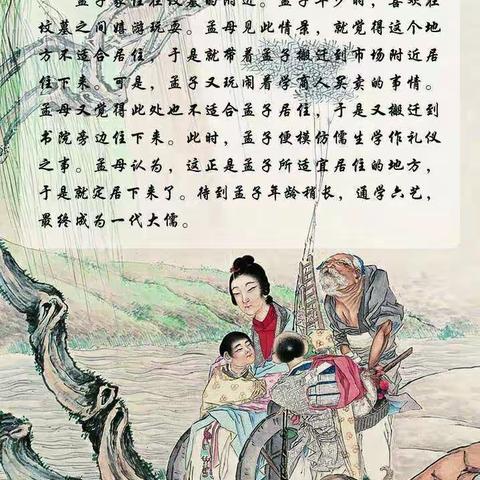 孟子家住在坟墓的附近。孟子年少时，喜欢在
坟墓之间嬉游玩耍。孟母见此情景，就觉得这个地
方不适合居住，于是就带着孟子搬迁到市场附近居
住下来。可是，孟子又玩闹着学商人买卖的事情。
孟母又觉得此处也不适合孟子居住，于是又搬迁到
书院旁边住下来。此时，孟子便模仿儒生学作礼仪
之事。孟母认为，这正是孟子所适宜居住的地方，
于是就定居下来了。待到孟子年龄稍长，通学六艺，
最终成为一代大儒。